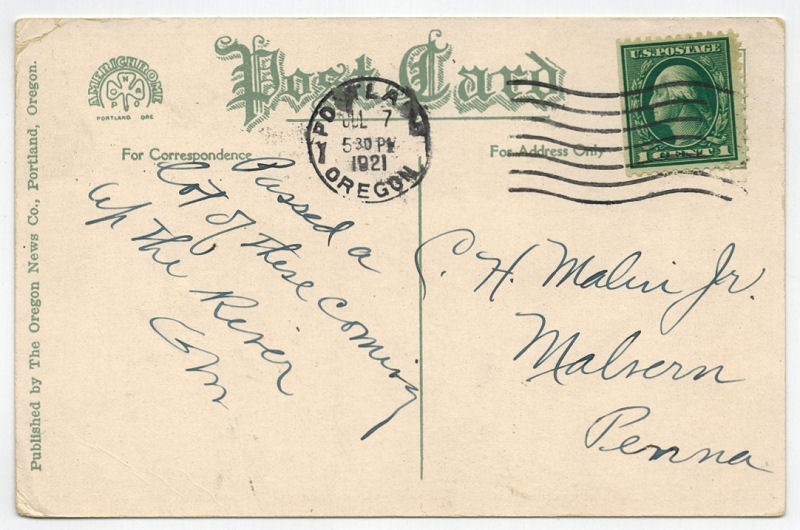 AMERICHROME
PORTLAND ORE
Post Card
For Correspondence
For Address Only
PORTLAND
JUL 7
530 PM
1921
OREGON
U.S. POSTAGE
1 CENT 1
Passed a
lot of these coming
up the River
C. H. Malin Jr.
Malvern
Penna
Published by The Oregon News Co., Portland, Oregon.